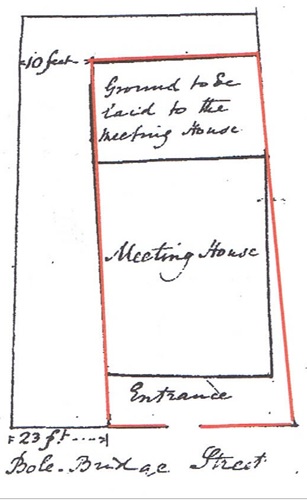 10 feet
Ground to be
laid to the
Meeting House
Meeting House
Entrance
23 ft
Bole-Bridge Street